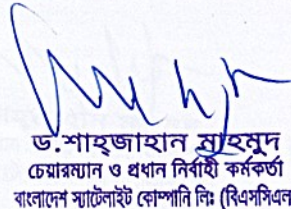 ড.শাহ্জাহান মাহমুদ
চেয়ারম্যান ও প্রধান নির্বাহী কর্মকর্তা
বাংলাদেশ স্যাটেলাইট কোম্পানি লিঃ (বিএসসিএল